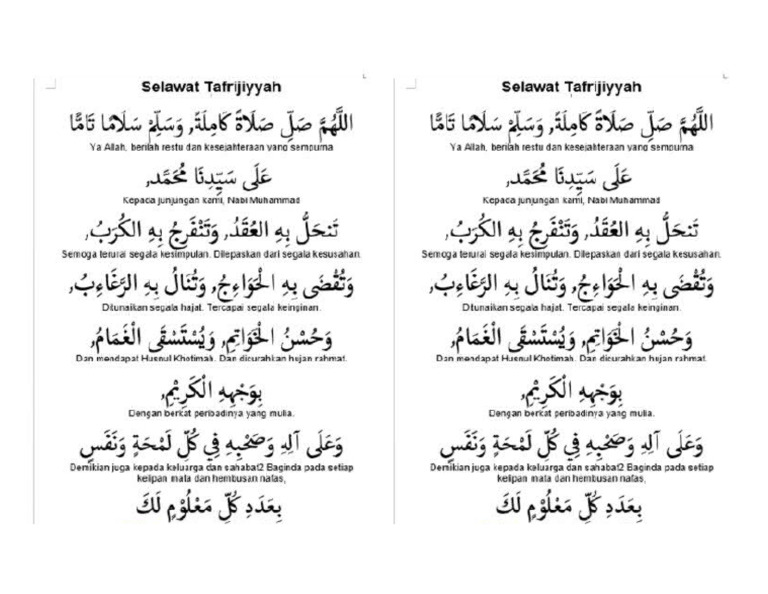 Selawat Tafrijiyyah
اللَّهُمَّ صَلِّ صَلَاةً كَامِلَةً, وَسَلِّمْ سَلَامًا تَامًّا
Ya Allah, berilah restu dan kesejahteraan yang sempurna
عَلَى سَيِّدِنَا مُحَمَّد,
Kepada junjungan kami, Nabi Muhammad
تَنحَلُّ بِهِ العُقَدُ, وَتَنْفَرِجُ بِهِ الكُرَبُ,
Semoga terurai segala kesimpulan. Dilepaskan dari segala kesusahan.
وَتُقْضَى بِهِ الْحَوَاءِجُ, وَتُنَالُ بِهِ الرَّغَاءِبُ,
Ditunaikan segala hajat. Tercapai segala keinginan.
وَحُسْنُ الْخَوَاتِمِ, وَيُسْتَسْقَى الْغَمَامُ,
Dan mendapat Husnul Khotimah. Dan dicurahkan hujan rahmat.
بِوَجْهِهِ الْكَرِيْمِ,
Dengan berkat peribadinya yang mulia.
وَعَلَى آلِهِ وَصَحْبِهِ فِي كُلِّ لَمْحَةٍ وَنَفَسٍ
Demikian juga kepada keluarga dan sahabat2 Baginda pada setiap
kelipan mata dan hembusan nafas,
بِعَدَدِ كُلِّ مَعْلُوْمٍ لَكَ
Selawat Tafrijiyyah
اللَّهُمَّ صَلِّ صَلَاةً كَامِلَةً, وَسَلِّمْ سَلَامًا تَامًّا
Ya Allah, berilah restu dan kesejahteraan yang sempurna
عَلَى سَيِّدِنَا مُحَمَّد,
Kepada junjungan kami, Nabi Muhammad
تَنحَلُّ بِهِ العُقَدُ, وَتَنْفَرِجُ بِهِ الكُرَبُ,
Semoga terurai segala kesimpulan. Dilepaskan dari segala kesusahan.
وَتُقْضَى بِهِ الْحَوَاءِجُ, وَتُنَالُ بِهِ الرَّغَاءِبُ,
Ditunaikan segala hajat. Tercapai segala keinginan.
وَحُسْنُ الْخَوَاتِمِ, وَيُسْتَسْقَى الْغَمَامُ,
Dan mendapat Husnul Khotimah. Dan dicurahkan hujan rahmat.
بِوَجْهِهِ الْكَرِيْمِ,
Dengan berkat peribadinya yang mulia.
وَعَلَى آلِهِ وَصَحْبِهِ فِي كُلِّ لَمْحَةٍ وَنَفَسٍ
Demikian juga kepada keluarga dan sahabat2 Baginda pada setiap
kelipan mata dan hembusan nafas,
بِعَدَدِ كُلِّ مَعْلُوْمٍ لَكَ